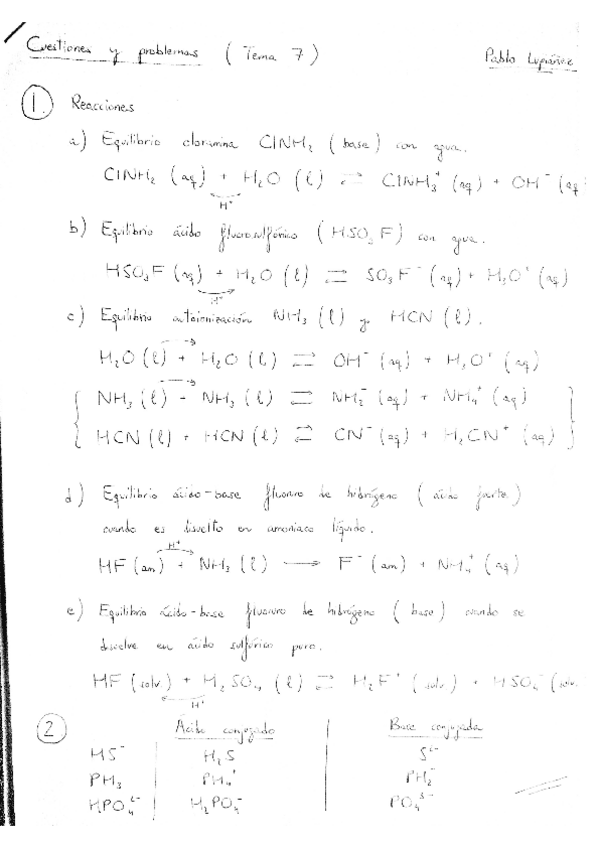 Cuestiones y problemas (Tema 7)
Pablo Lupiáñez
1. Reacciones
a) Equilibrio cloramina ClNH₂ (base) con agua.
ClNH₂ (aq) + H₂O (l) ⇄ ClNH₃⁺ (aq) + OH⁻ (aq
H⁺
b) Equilibrio ácido fluorosulfónico (HSO₃F) con agua.
HSO₃F (aq) + H₂O (l) ⇄ SO₃F⁻ (aq) + H₃O⁺ (aq)
H⁺
c) Equilibrio autoionización NH₃ (l) y HCN (l).
H₂O (l) + H₂O (l) ⇄ OH⁻ (aq) + H₃O⁺ (aq)
NH₃ (l) + NH₃ (l) ⇄ NH₂⁻ (aq) + NH₄⁺ (aq)
HCN (l) + HCN (l) ⇄ CN⁻ (aq) + H₂CN⁺ (aq)
d) Equilibrio ácido-base fluoruro de hidrógeno (ácido fuerte)
cuando es disuelto en amoniaco líquido.
H⁺
HF (am) + NH₃ (l) → F⁻ (am) + NH₄⁺ (aq)
e) Equilibrio ácido-base fluoruro de hidrógeno (base) cuando se
disuelve en ácido sulfúrico puro.
HF (solv) + H₂SO₄ (l) ⇄ H₂F⁺ (solv) + HSO₄⁻ (solv
H⁺
2 Ácido conjugado Base conjugada
HS⁻ H₂S S²⁻
PH₃ PH₄⁺ PH₂⁻
HPO₄²⁻ H₂PO₄⁻ PO₄³⁻